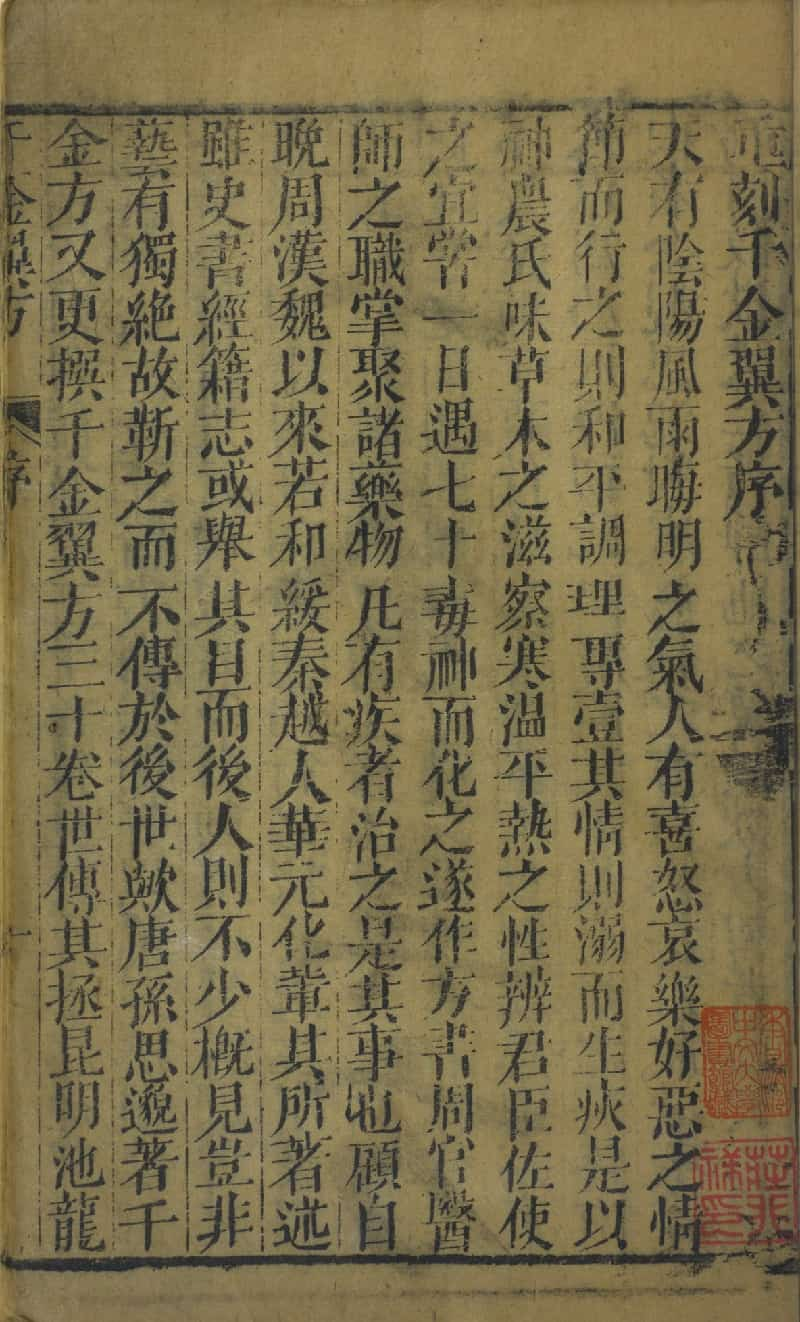 重刻千金翼方序
天有陰陽風雨晦明之氣人有喜怒哀樂好惡之情
節而行之則和平調理專壹其情則溺而生疢是以
神農氏味草木之滋察寒温平熱之性辨君臣佐使
之宜嘗一日遇七十毒神而化之遂作方書周官醫
師之職掌聚諸藥物凡有疾者治之是其事也顧自
晩周漢魏以來若和緩秦越人華元化軰其所著述
雖史書經籍志或舉其目而後人則不少概見豈非
藝有獨絶故靳之而不傳於後世歟唐孫思邈著千
金方又更撰千金翼方三十卷世傳其拯昆明池龍
千金翼方 序 一